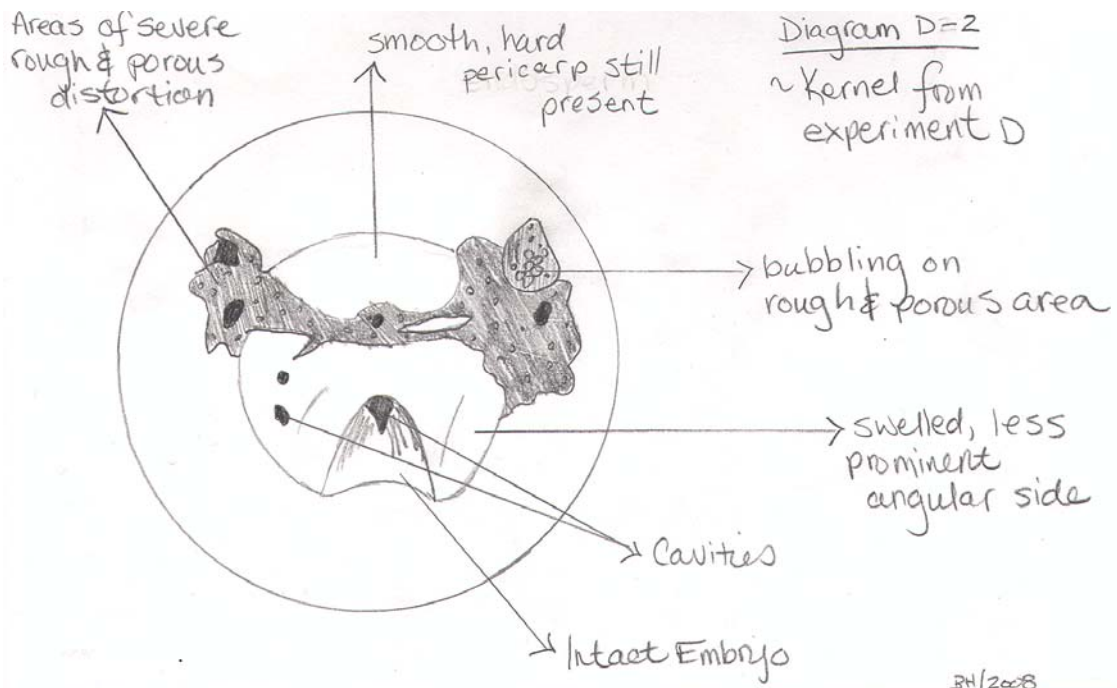 Areas of severe
rough & porous
distortion
smooth, hard
pericarp still
present
Diagram D=2
~ Kernel from
experiment D
bubbling on
rough & porous area
swelled, less
prominent
angular side
Cavities
Intact Embryo
BH/2008